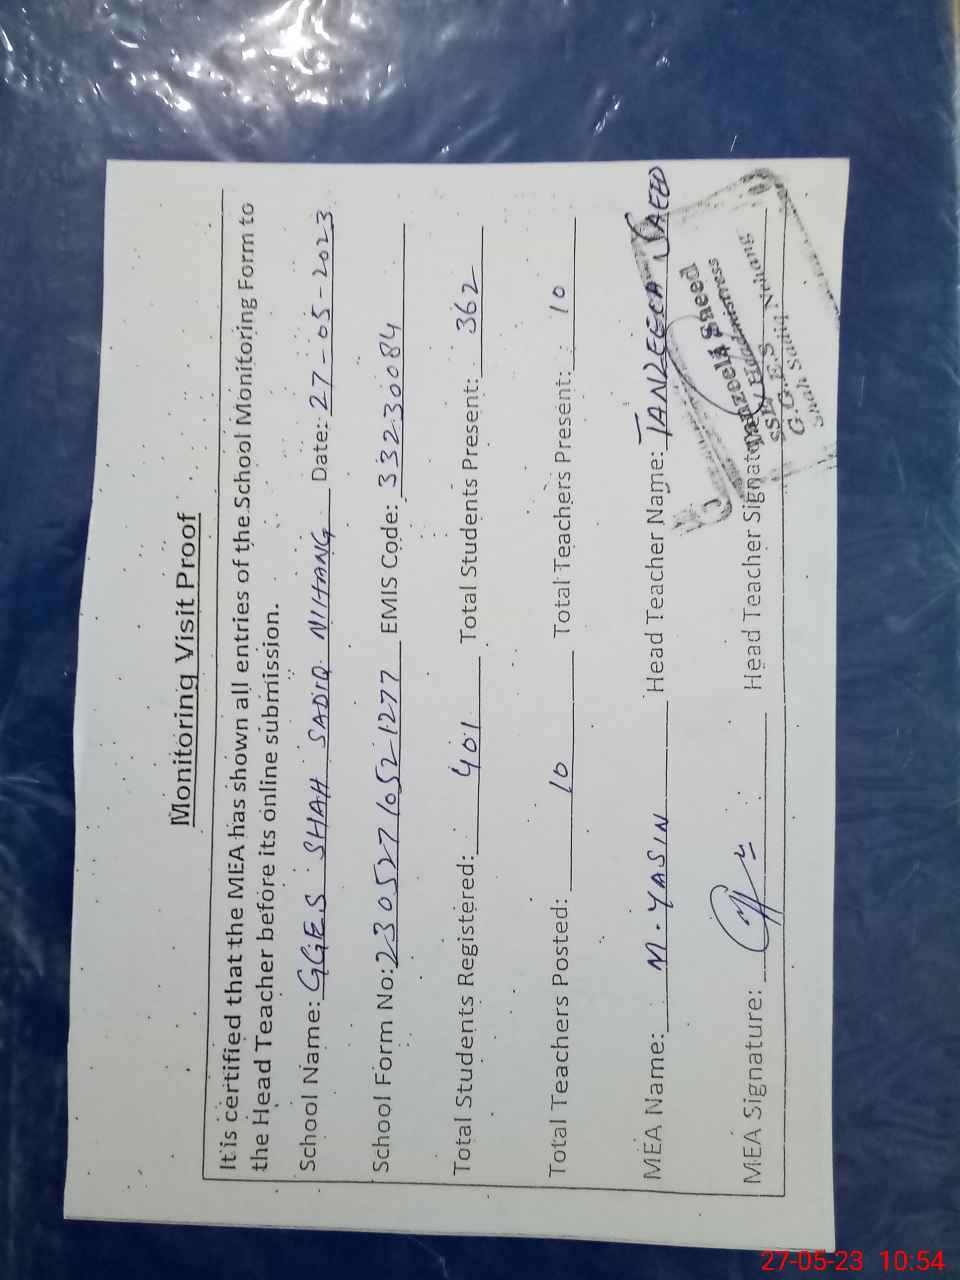 Monitoring Visit Proof
It is certified that the MEA has shown all entries of the School Monitoring Form to
the Head Teacher before its online submission.
School Name: GGES SHAH SADIQ NIHANG Date: 27-05-2023
School Form No: 230527 1052 1277 EMIS Code: 33230084
Total Students Registered: 401 Total Students Present: 362
Total Teachers Posted: 10 Total Teachers Present: 10
MEA Name: M. YASIN Head Teacher Name: TANZEELA SAEED
MEA Signature: Head Teacher Signature:
Tanzeela Saeed
Headmistress
G.G.E.S
Shah Sadiq Nehang
27-05-23 10:54